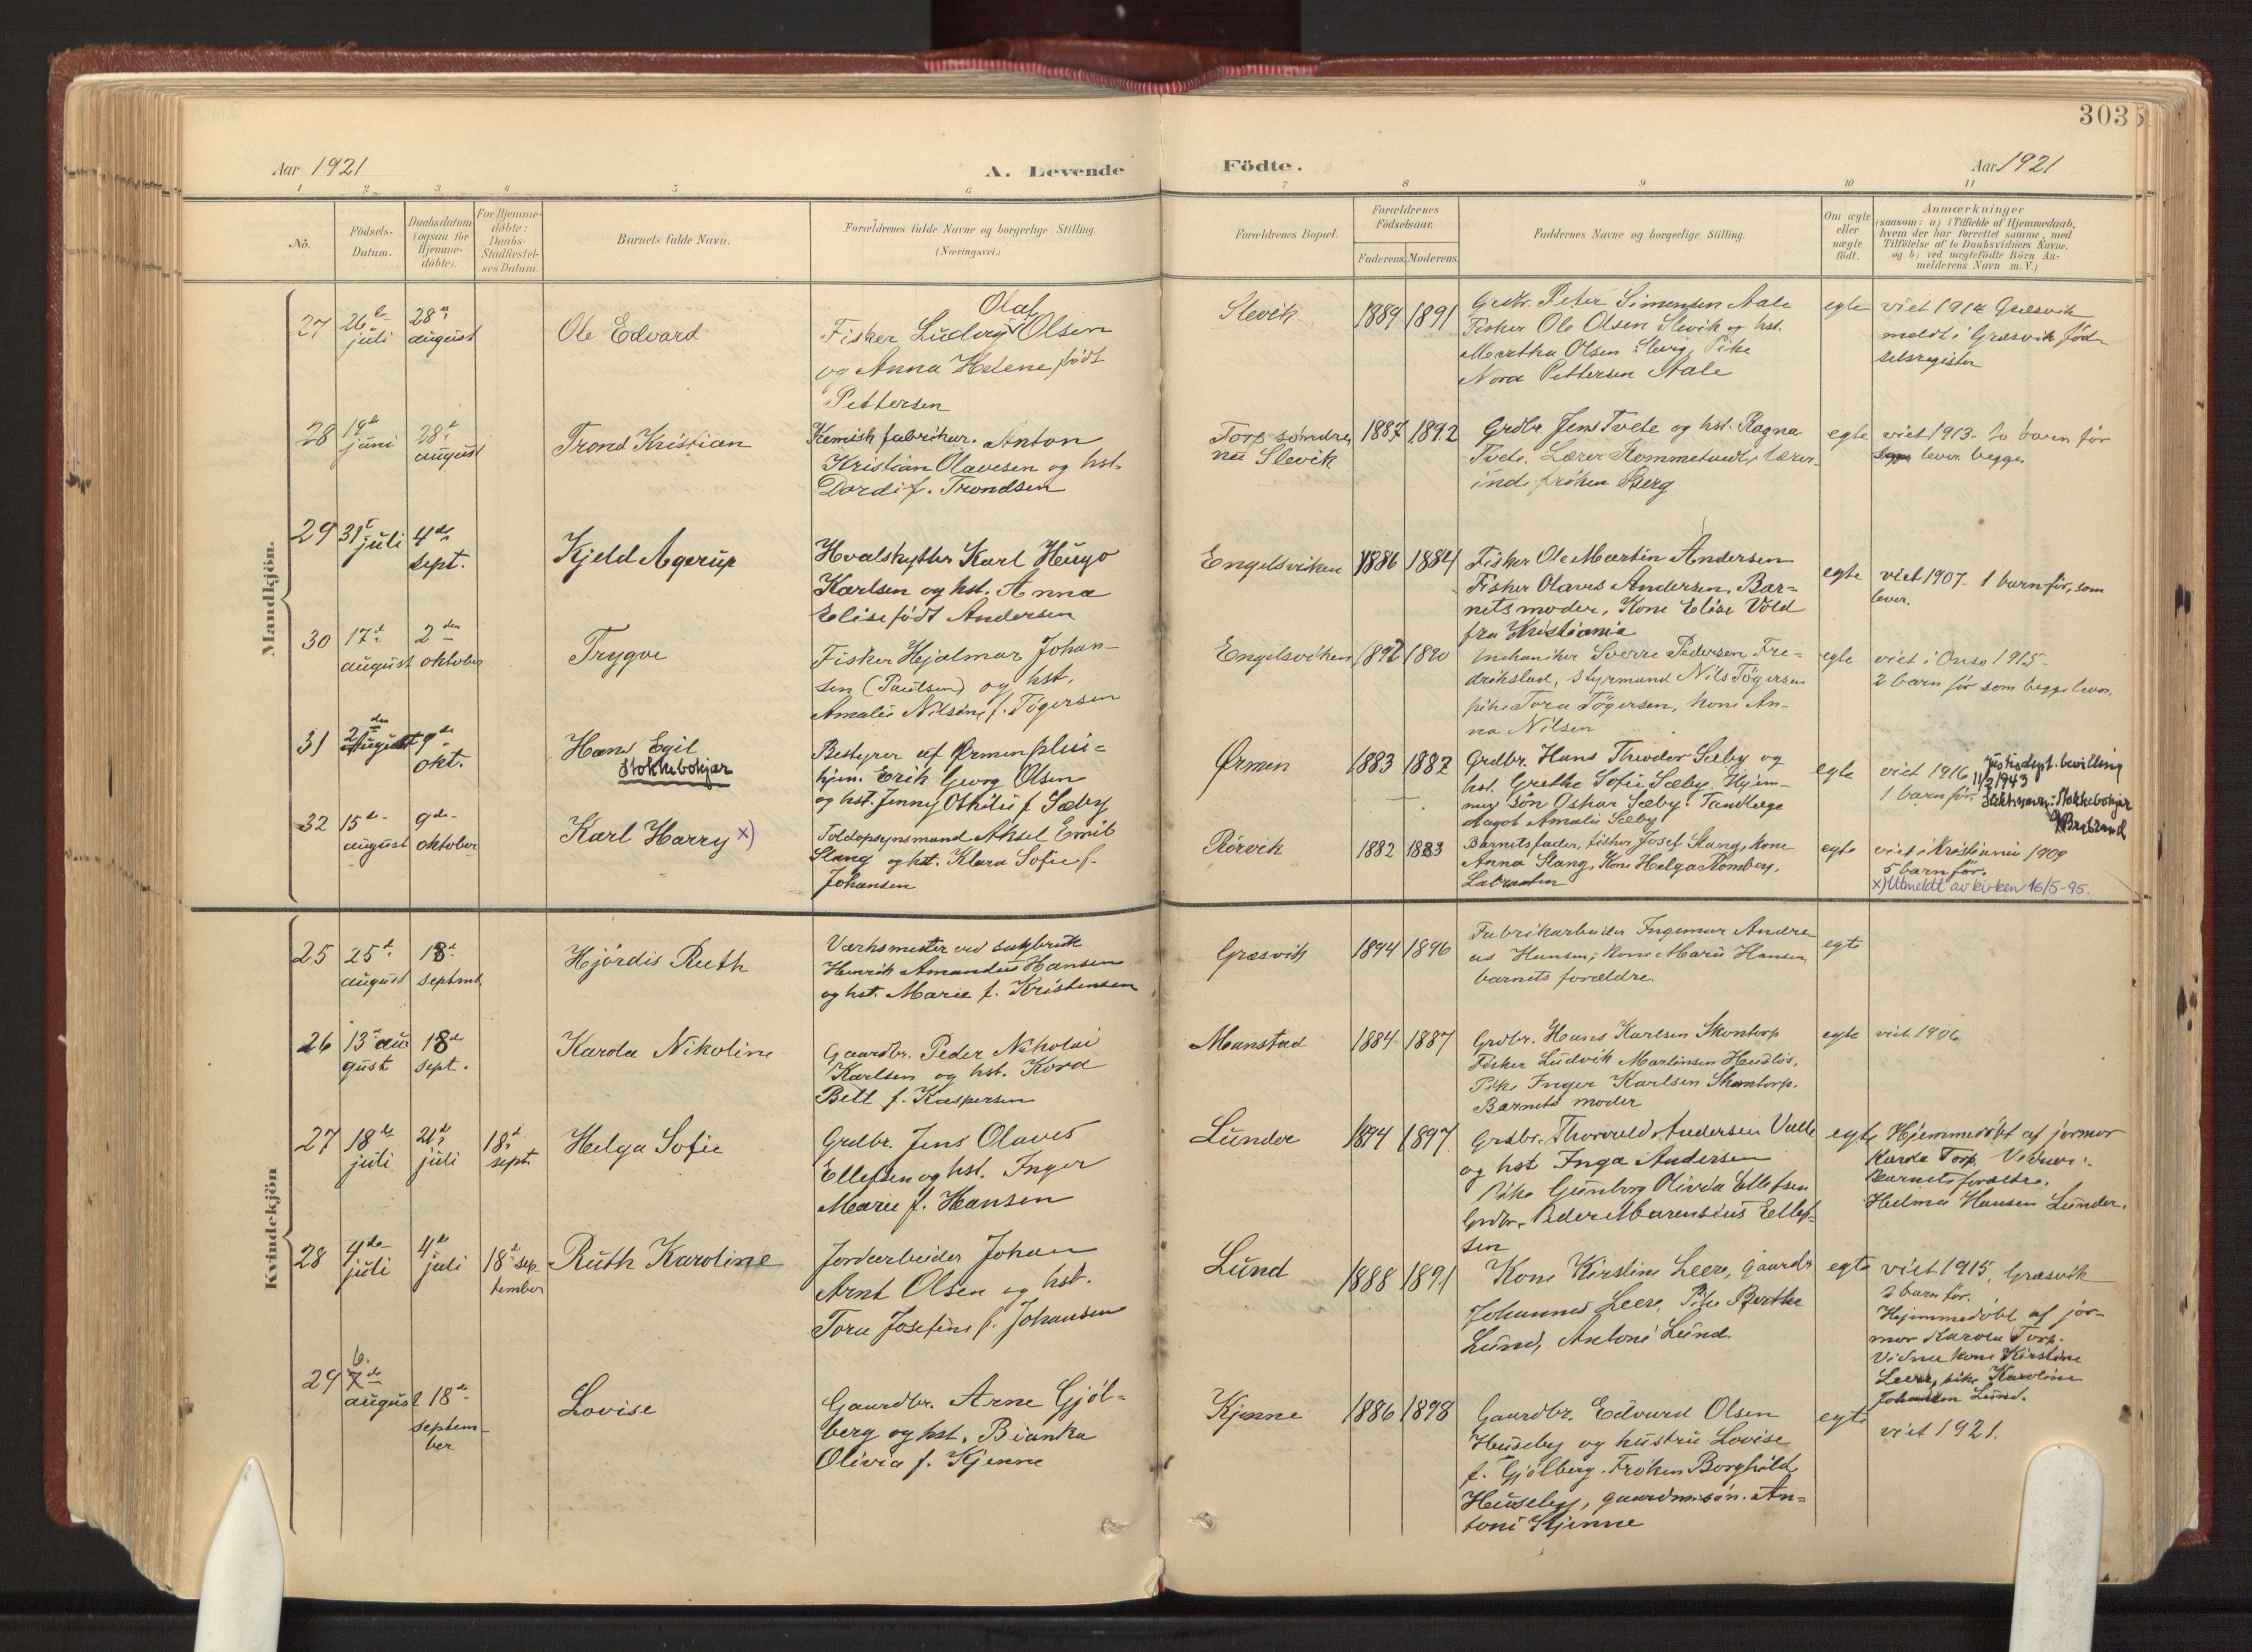 303
Aar 1921
A. Levende
Födte.
Aar 1921
1 2 3 4 5 6 7 8 9 10 11
No.
Födsels-
Datum.
Daabsdatum
(ogsaa for
Hjemme-
döbte).
For Hjemme-
döbte:
Daabs-
Stadfæstel-
ses Datum.
Barnets fulde Navn.
Forældrenes fulde Navne og borgerlige Stilling
(Næringsvei.)
Forældrenes Bopæl.
Forældrenes
Födselsaar.
Faderens.
Moderens.
Faddernes Navne og borgerlige Stilling.
Om ægte
eller
uægte
født.
Anmærkninger
(saasom: a) i Tilfælde af Hjemmedaab,
hvem der har forrettet samme, med
Tilföielse af to Daabsvidners Navne.
og b) ved uægtefödte Börn An-
melderens Navn m. V.)
Mandkjön.
27
26de
juli
28de
august
Ole Edvard
Olaf
Fisker Ludvig Olsen
og Anna Helene født
Pettersen
Slevik
1889
1891
Grdbr. Peter Simensen Aale
Fisker Ole Olsen Slevik og hst.
Martha Olsen Slevig, Pike
Nora Pettersen Aale
egte
viet 1912 Græsvik
meldt i Græsvik fød-
selsregister
28
19de
juni
28de
august
Trond Kristian
Kemisk fabrikar. Anton
Kristian Olavesen og hst.
Dordi f. Trondsen
Torp søndre,
nu Slevik
1887
1892
Grdbr. Jens Tvete og hst. Ragna
Tvete. Lærer Rommetvedt, lærer-
inde frøken Berg
egte
viet 1913. to barn før
lever begge
29
31te juli
4de
sept.
Kjeld Agerup
Hvalskytter Karl Hugo
Karlsen og hst. Anna
Elise født Andersen
Engelsviken
1886
1884
Fisker Ole Martin Andersen
Fisker Olaves Andersen, Bar-
nets moder, Kone Elise Vold
fra Kristiania
egte
viet 1907. 1 barn før, som
lever.
30
17de
august
2den
oktober
Trygve
Fisker Hjalmar Johan-
sen (Paulsen) og hst.
Amalie Nilsine f. Tögersen
Engelsviken
1892
1890
Mekaniker Sverre Pedersen Fre-
drikstad, Styrmand Nils Tögersen
pike Tora Tögersen, kone An-
na Nilsen
egte
viet i Onsø 1915.
2 barn før som begge lever.
31
21den
august
9de
okt.
Hans Egil
Stokkebokjær
Bestyrer af Ørmen pleie-
hjem. Erik Georg Olsen
og hst. Jenny Othilie f. Sæby
Ørmen
1883
1882
Grdbr. Hans Theodor Sæby og
hst. Grethe Sofie Sæby. Hjem-
mev. søn Oskar Sæby. Tandlæge
Magot Amalie Sæby
egte
viet 1916
1 barn før.
justisdept. bevilling
11/2 1943
Slektsnavn: Stokkebokjær
32
15de
august
9de
oktober
Karl Harry x)
Toldopsynsmand Aksel Emil
Slang og hst. Klara Sofie f.
Johansen
Rörvik
1882
1883
Barnets fader, fisker Josef Slang, kone
Anna Slang, Kone Helga Romberg,
egte
viet i Kristiania 1909
5 barn før.
x) Utmeldt av kirken 16/5-95.
Kvindekjön
25
25de
august
18de
septmb.
Hjördis Ruth
Værksmester ved sagbruk
Henrik Amandus Hansen
og hst. Marie f. Kristensen
Græsvik
1894
1896
Fabrikarbeider Ingemar Andre-
as Hansen, kone Marie Hansen
barnets forældre.
egte
26
13de au-
gust
18de
sept.
Karda Nikoline
Gaardbr. Peder Nikolai
Karlsen og hst. Kord
Bell f. Kaspersen
Manstad
1884
1887
Grdbr. Hans Karlsen Skontorp
Fisker Ludvik Martinsen Hestlös,
Pike Inger Karlsen Skontorp.
Barnets moder
egte
viet 1906
27
18de
juli
21de
juli
18de
sept.
Helga Sofie
Grdbr. Jens Olaves
Ellefsen og hst. Inger
Marie f. Hansen
Lunder
1894
1897
Grdbr. Thorvald Andersen Valle
og hst Inga Andersen
Pike Gunborg Olivia Ellefsen
Grdbr. Peder Marensius Ellef-
sen
egte
Hjemmedøbt af jormor
Karda Torp Vidner:
Barnets forældre.
Helma Hansen Lunder.
28
4de
juli
4de
juli
18de sep-
tember
Ruth Karoline
Jordarbeider Johan
Arnt Olsen og hst.
Tora Josefine f. Johansen
Lund
1888
1891
Kone Kirstine Leere, gaardbr
Johannes Leere, Pike Berthe
Lund, Antone Lund.
egte
viet 1915, Græsvik
2 barn før.
Hjemmedöbt af jor-
mor Karda Torp.
Vidner kone Kirstine
Leere, pike Karoline
Johansen Lund.
29
6.
7de
august
18de
septem-
ber
Lovise
Gaardbr. Arne Gjöl-
berg og hst. Bianka
Olivia f. Kjenne
Kjenne
1886
1898
Gaardbr. Edvard Olsen
Huseby og hustru Lovise
f. Gjölberg. Frøken Borghild
Huseby, gaardm.søn. An-
toni Kjenne
egte
viet 1921.